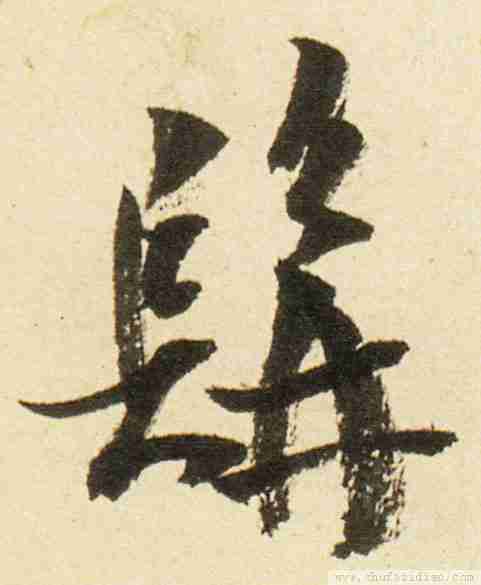 髯
www.shufazidian.com